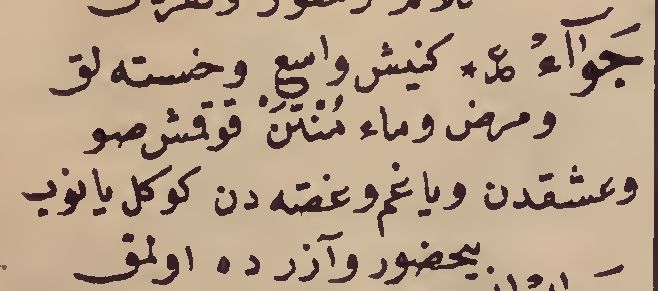 جَوَآءُ ع * كنيش واسع وخسته لق
ومرض وماء مُنْتَنْ قوقمش صو
وعشقدن ويا غم وغصّه دن كوكل يانوب
بيحضور وآزرده اولمق